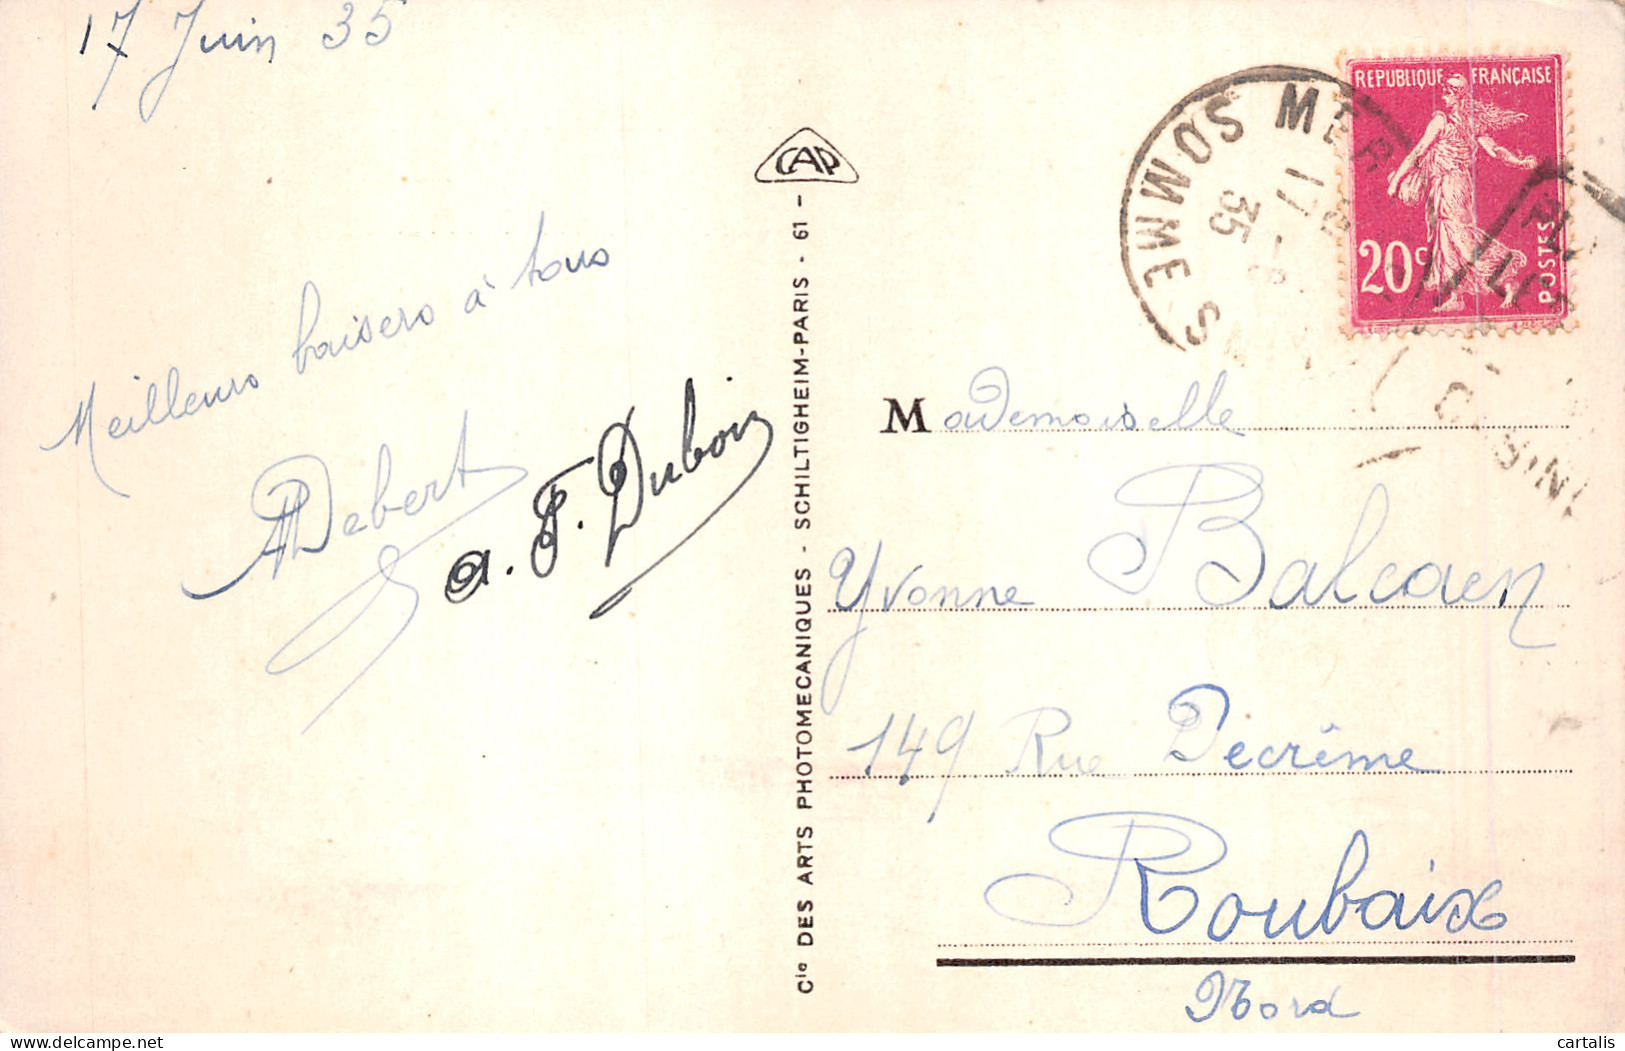 17 Juin 35
Meilleurs baisers à tous
ADebert
a. F. Dubois
CAP
Cie DES ARTS PHOTOMECANIQUES - SCHILTIGHEIM-PARIS - 61 -
REPUBLIQUE FRANÇAISE
20c
POSTES
MER
SOMME
17 - 6
35
Mademoiselle
Yvonne Balcaen
149 Rue Decrême
Roubaix
Nord
cartalis